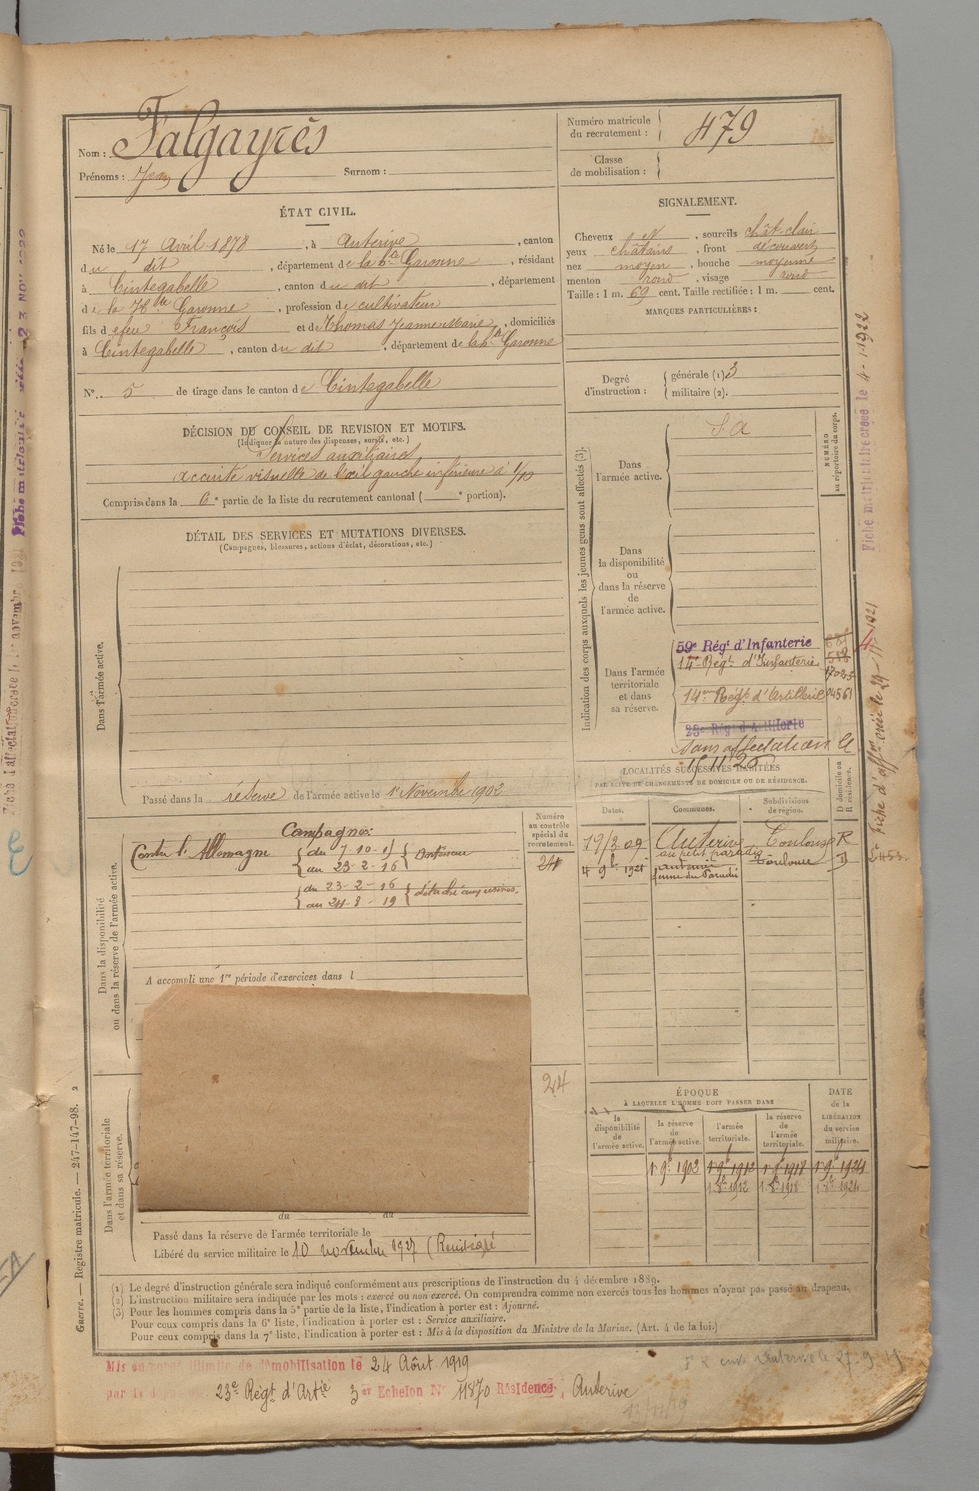 Nom : Falgayrès
Prénoms : Jean Surnom :
Numéro matricule du recrutement : 479
Classe de mobilisation :
ÉTAT CIVIL.
Né le 17 Avril 1878, à Auterive, canton
du dit, département de la Hte Garonne, résidant
à Cintegabelle, canton du dit, département
de la Hte Garonne, profession de cultivateur
fils de feu François et de Thomas Jeanne Marie, domiciliés
à Cintegabelle, canton du dit, département de la Hte Garonne
N° 5 de tirage dans le canton de Cintegabelle
SIGNALEMENT.
Cheveux et N, sourcils chât clair
yeux châtains, front découvert
nez moyen, bouche moyenne
menton rond, visage rond
Taille : 1 m. 69 cent. Taille rectifiée : 1 m. cent.
MARQUES PARTICULIÈRES :
Degré d'instruction : générale (1) 3
militaire (2).
DÉCISION DU CONSEIL DE REVISION ET MOTIFS.
(Indiquer la nature des dispenses, sursis, etc.)
Services auxiliaires
accuité visuelle de l'œil gauche inférieure à 1/10
Compris dans la 6e partie de la liste du recrutement cantonal ( e portion).
DÉTAIL DES SERVICES ET MUTATIONS DIVERSES.
(Campagnes, blessures, actions d'éclat, décorations, etc.)
Dans l'armée active.
Passé dans la réserve de l'armée active le 1er Novembre 1902
Indication des corps auxquels les jeunes gens sont affectés (3).
NUMÉRO au répertoire du corps.
Dans l'armée active. S A
Dans la disponibilité ou dans la réserve de l'armée active.
Dans l'armée territoriale et dans sa réserve.
59e Régt d'Infanterie
14e Régt d'Infanterie
14me Régt d'Artillerie 04561
23e Régt d'Artillerie
sans affectation
LOCALITÉS SUCCESSIVES HABITÉES
PAR SUITE DE CHANGEMENTS DE DOMICILE OU DE RÉSIDENCE.
Dates. Communes. Subdivisions de région. D domicile ou R résidence.
19/3 09 Auterive Toulouse R
au petit Paradis
4 9bre 1921 Auterive Toulouse D
Dans la disponibilité ou dans la réserve de l'armée active.
Numéro au contrôle spécial du recrutement.
24
Campagnes
Contre l'Allemagne du 7-10-15 Intérieur
au 23-2-16
du 23-2-16 détaché aux usines
au 24-8-19
A accompli une 1re période d'exercices dans l
24
Dans l'armée territoriale et dans sa réserve.
du au
Passé dans la réserve de l'armée territoriale le
Libéré du service militaire le 10 novembre 1927
ÉPOQUE
À LAQUELLE L'HOMME DOIT PASSER DANS
la disponibilité de l'armée active. la réserve de l'armée active. l'armée territoriale. la réserve de l'armée territoriale.
DATE de la LIBÉRATION du service militaire.
1er 9bre 1902 1er 9bre 1912 1er 9bre 1918 1er 9bre 1924
1 8bre 1912 1 8bre 1918 1 8bre 1924
Guerre. — Registre matricule. — 247-147-98. 2
(1) Le degré d'instruction générale sera indiqué conformément aux prescriptions de l'instruction du 4 décembre 1889.
(2) L'instruction militaire sera indiquée par les mots : exercé ou non exercé. On comprendra comme non exercés tous les hommes n'ayant pas passé au drapeau.
(3) Pour les hommes compris dans la 5e partie de la liste, l'indication à porter est : Ajourné.
Pour ceux compris dans la 6e liste, l'indication à porter est : Service auxiliaire.
Pour ceux compris dans la 7e liste, l'indication à porter est : Mis à la disposition du Ministre de la Marine. (Art. 4 de la loi.)
Mis en congé illimité de démobilisation le 24 Août 1919
par le 23e Régt d'Artie 3er Echelon N° 11870 Résidence : Auterive
Fiche matriculaire créée le 4-1-1922